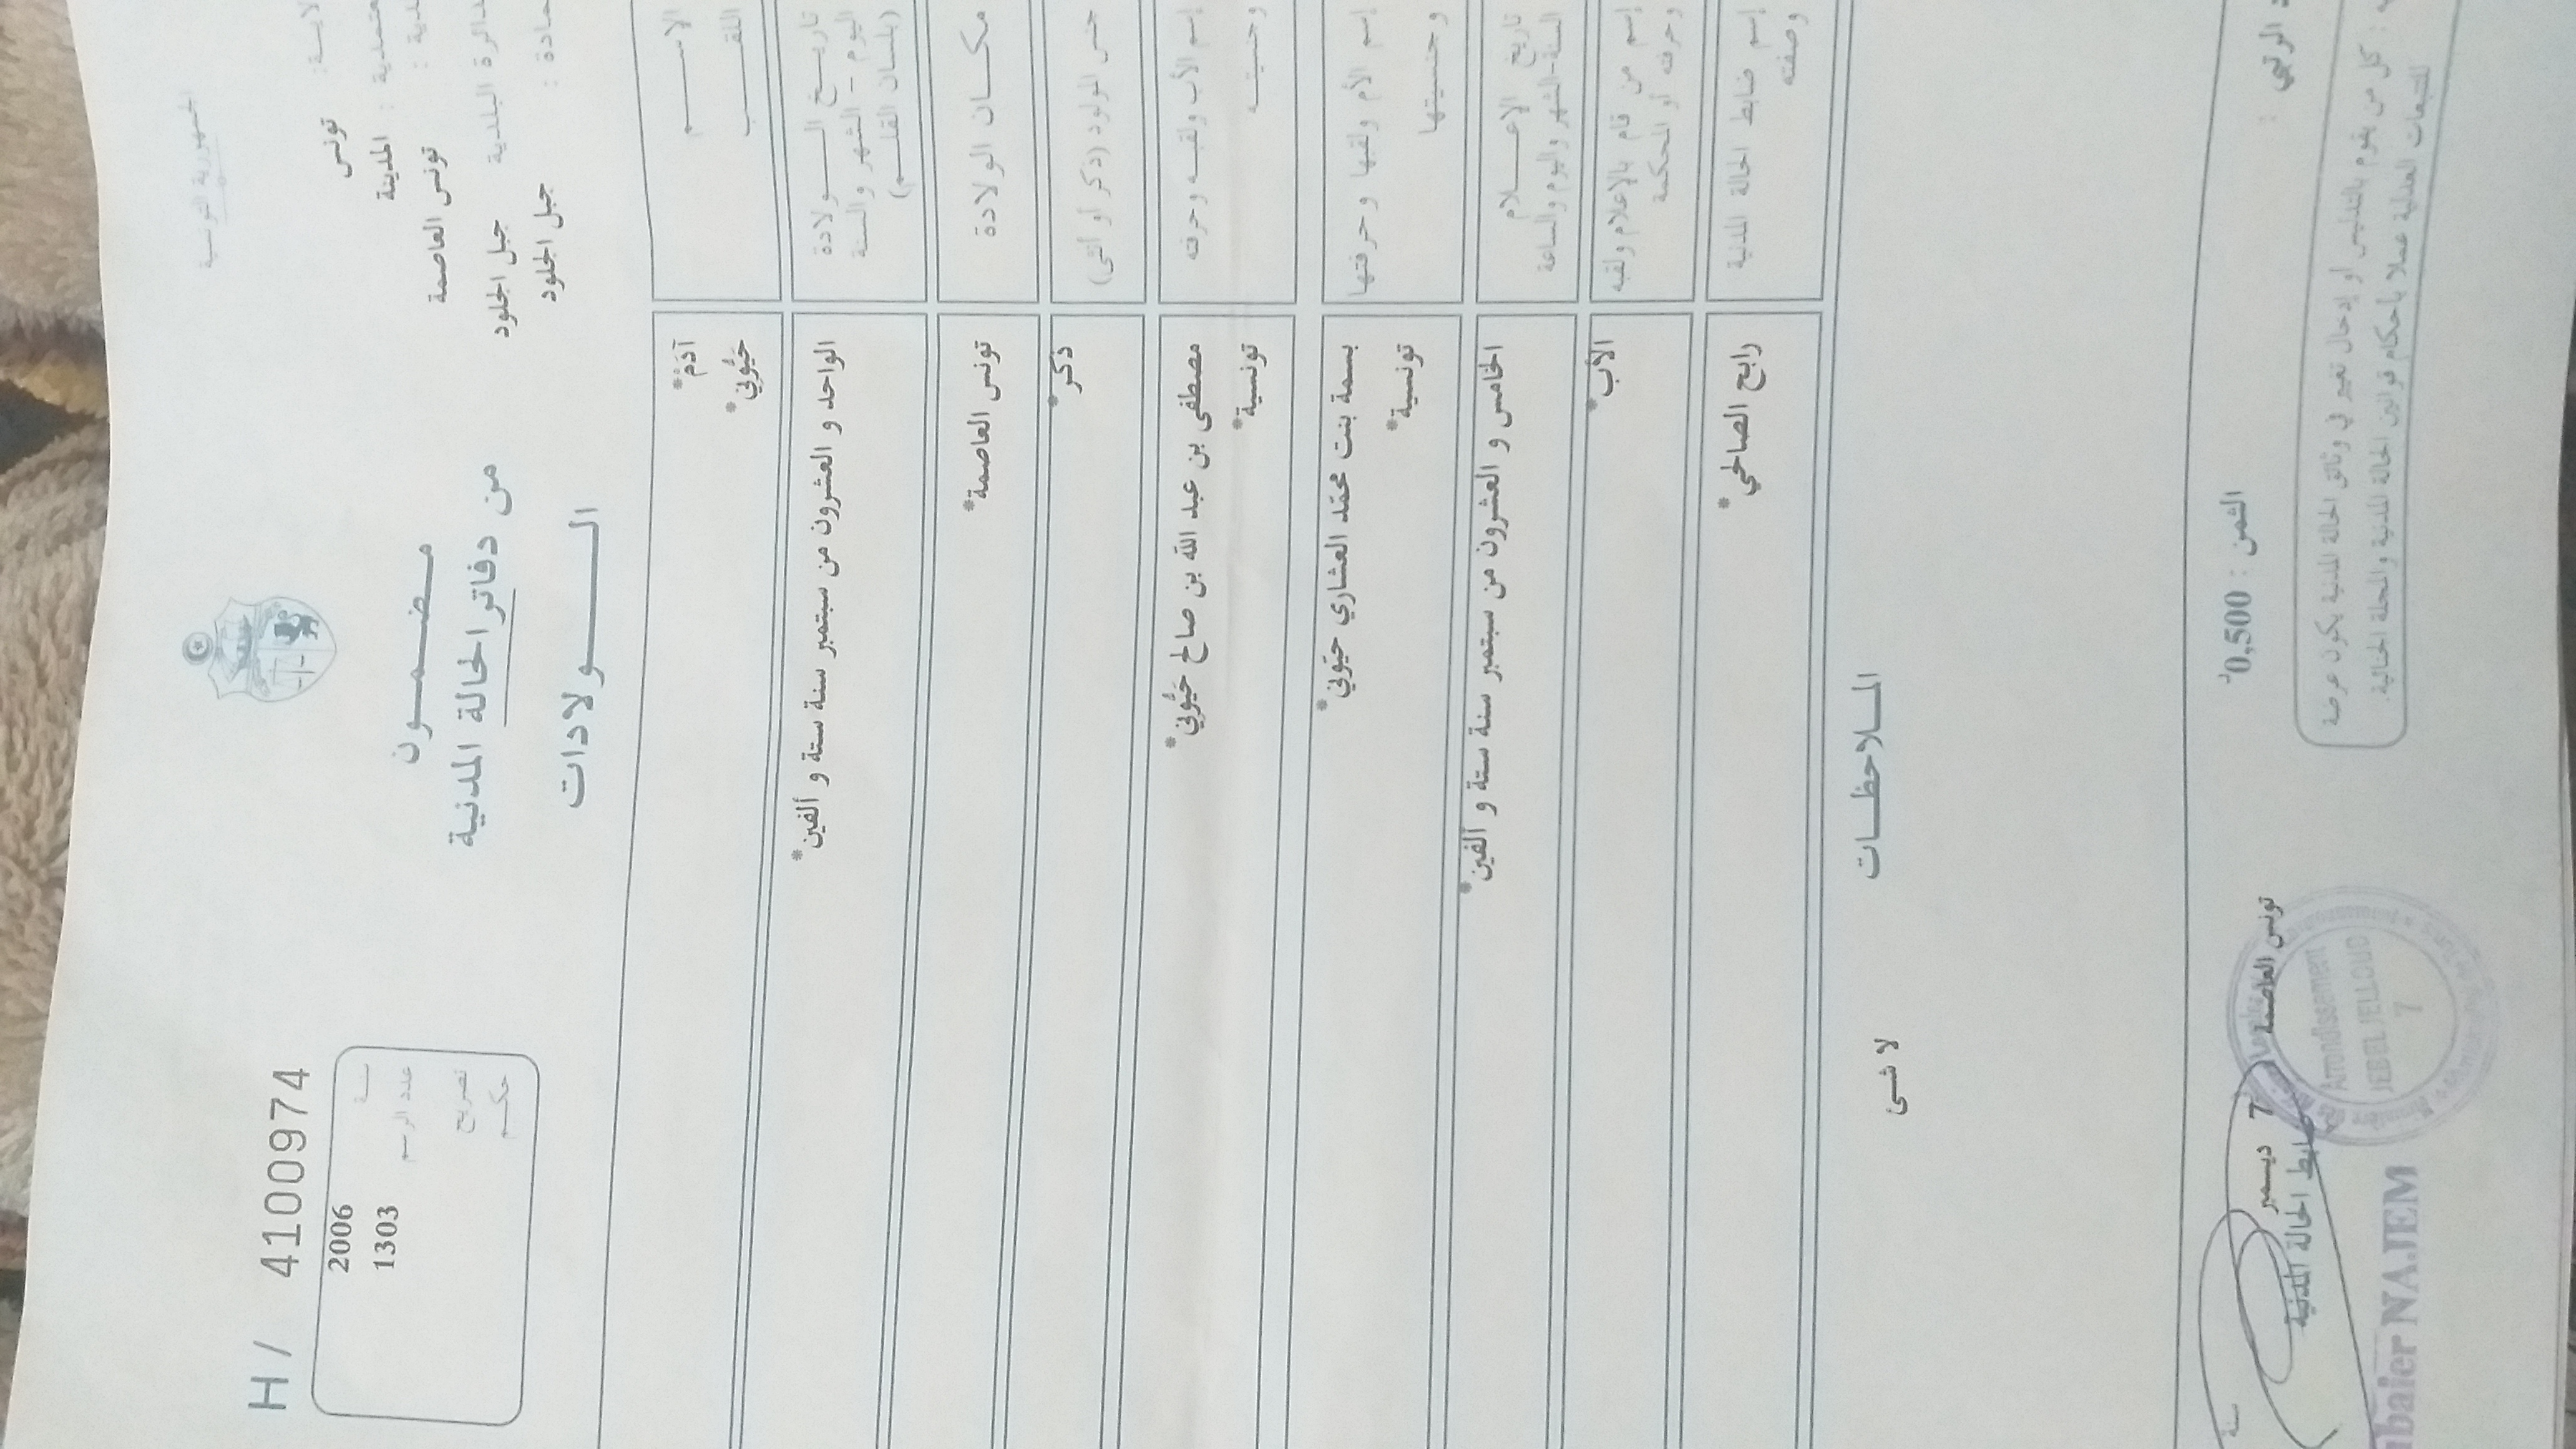 الجمهورية التونسية
H / 4100974
تونس
المدينة
تونس العاصمة
الدائرة البلدية جبل الجلود
جبل الجلود
سنة 2006
عدد الرسم 1303
تصريح
حكم
مضمون
من دفاتر الحالة المدنية
الولادات
الاسم
آدم*
اللقب
حيوني*
تاريخ الولادة
اليوم - الشهر والسنة
(بلسان القلم)
الواحد و العشرون من سبتمبر سنة ستة و ألفين*
مكان الولادة
تونس العاصمة*
جنس المولود (ذكر أو أنثى)
ذكر*
إسم الأب ولقبه وحرفته
وجنسيته
مصطفى بن عبد الله بن صالح حيوني*
تونسية*
إسم الأم ولقبها وحرفتها
وجنسيتها
بسمة بنت محمد العشاري حيوني*
تونسية*
تاريخ الإعلام
السنة-الشهر واليوم والساعة
الخامس و العشرون من سبتمبر سنة ستة و ألفين*
إسم من قام بالإعلام ولقبه
وحرفته أو المحكمة
الأب*
إسم ضابط الحالة المدنية
وصفته
رابح الصالحي*
الملاحظات
لا شئ
الثمن : 0,500د
تونس العاصمة
7 ديسمبر
سنة
ضابط الحالة المدنية
Arrondissement
JEBEL JELLOUD
7
NAJEM
كل من يقوم بالتدليس أو إدخال تغيير في وثائق الحالة المدنية يكون عرضة
للتتبعات العدلية عملا بأحكام قوانين الحالة المدنية والمجلة الجنائية.